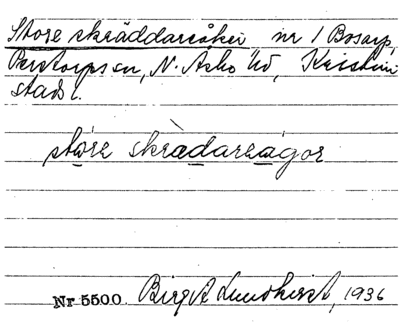 Store skräddareåker nr 1 Bosarp,
Perstorps sn, N. Åsbo hd, Kristian
stads l.
stóre skrädareágor
Nr 5500 Birgit Lundkvist, 1936